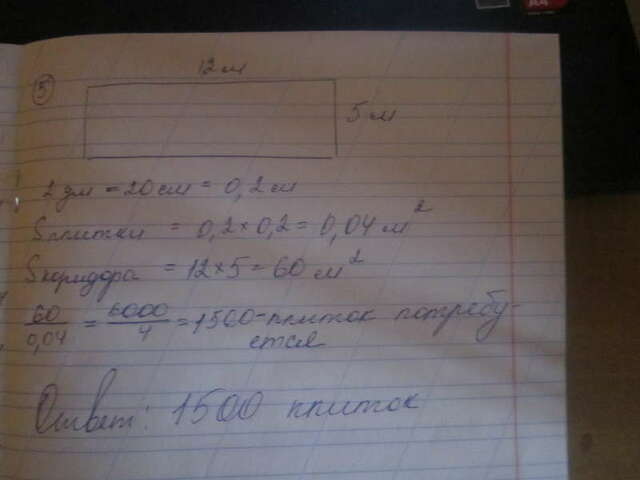 5
12 м
5 м
2 дм = 20 см = 0,2 м
Sплитки = 0,2 × 0,2 = 0,04 м²
Sкоридора = 12 × 5 = 60 м²
60/0,04 = 6000/4 = 1500 - плиток потребу-
ется
Ответ: 1500 плиток